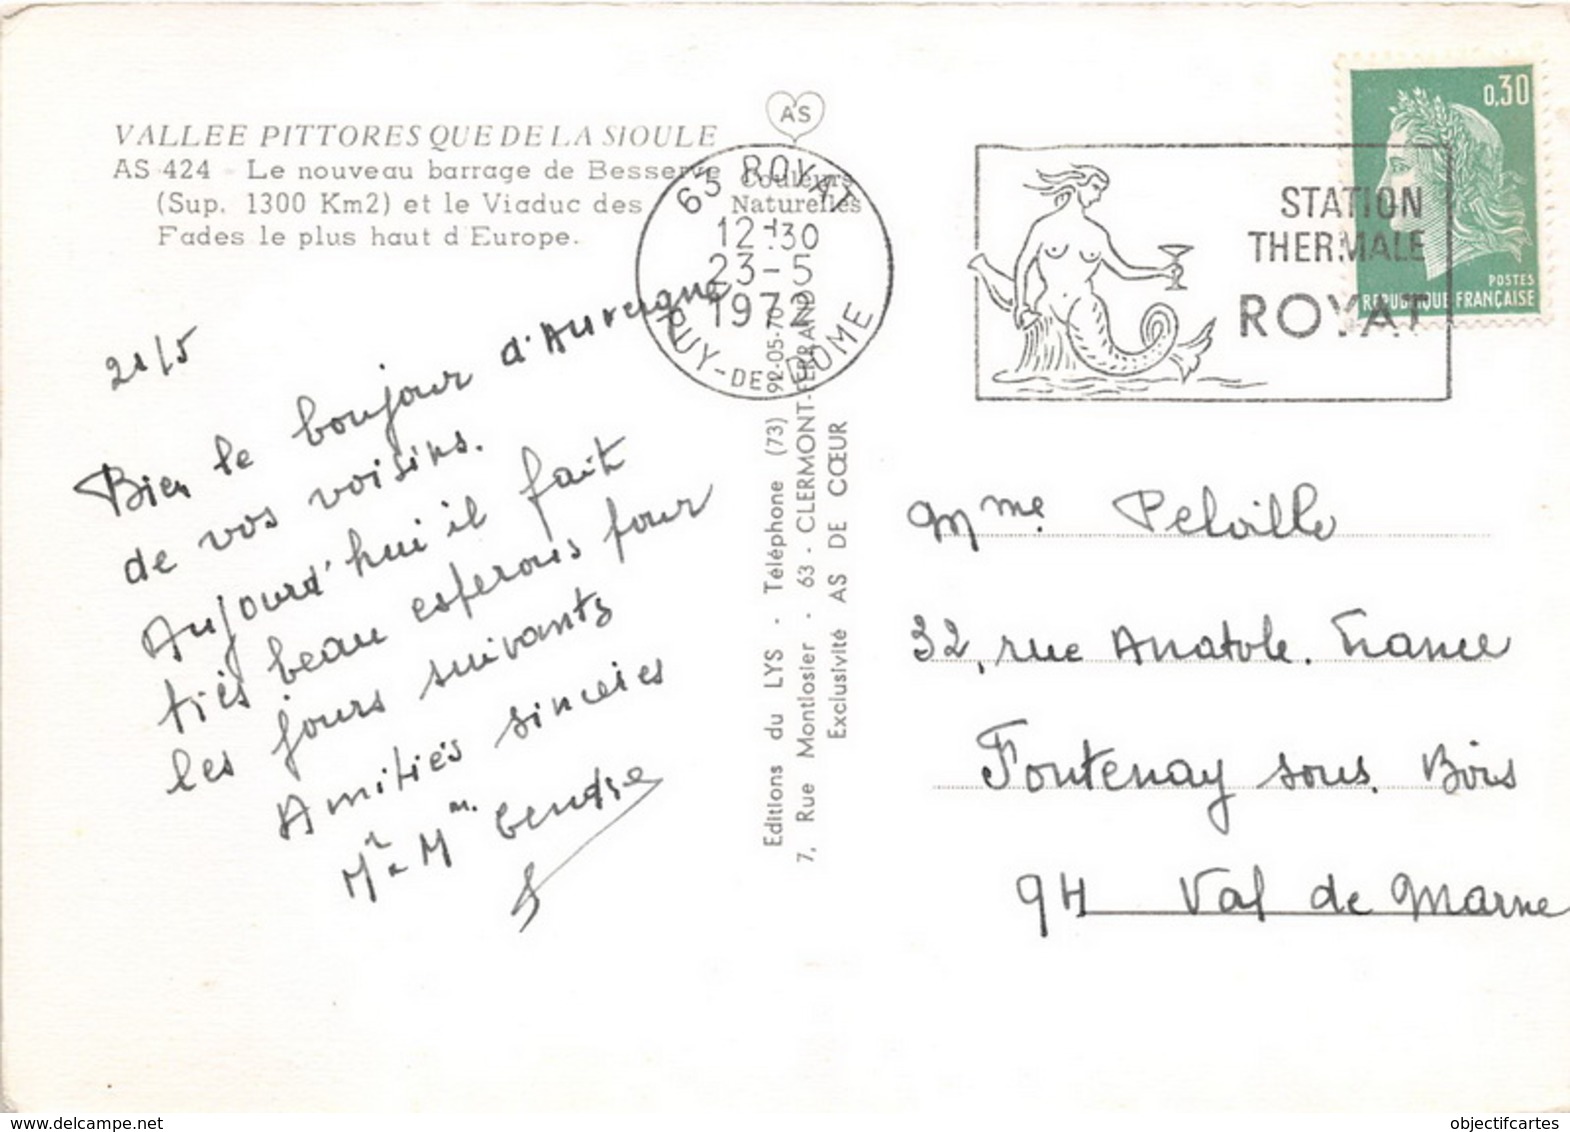 VALLEE PITTORESQUE DE LA SIOULE
AS 424 - Le nouveau barrage de Besserve
(Sup. 1300 Km2) et le Viaduc des
Fades le plus haut d'Europe.
AS
Couleurs
Naturelles
63 ROYAT
12H30
23-5
1972
PUY-DE-DOME
STATION
THERMALE
ROYAT
0,30
POSTES
REPUBLIQUE FRANÇAISE
21/5
Bien le bonjour d'Auvergne
de vos voisins.
Aujourd'hui il fait
très beau esperons pour
les jours suivants
Amitiés sincères
Mr & Mme
Editions du LYS - Téléphone (73) 92-05-70
7, Rue Montlosier - 63 - CLERMONT-FERRAND
Exclusivité AS DE CŒUR
Mme Pelville
32, rue Anatole. France
Fontenay sous Bois
94 Val de Marne
objectifcartes